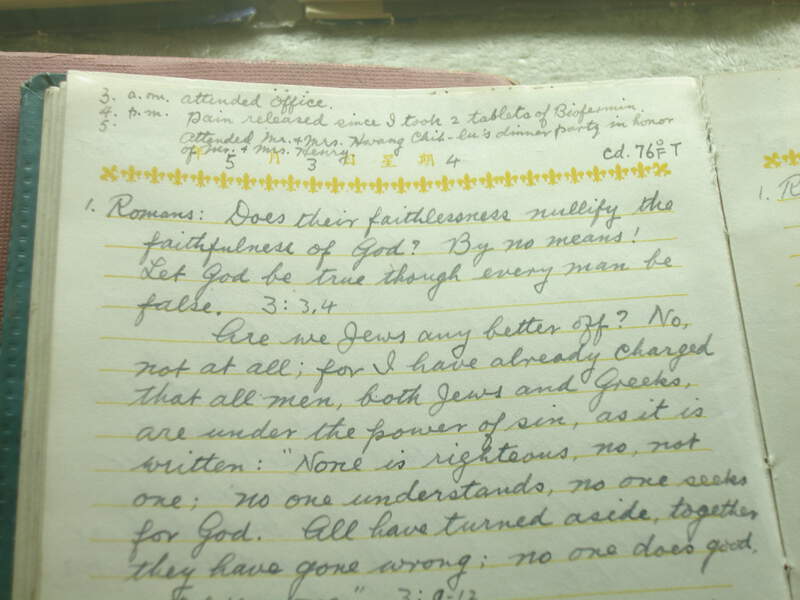 3. a.m. attended office.
4. p.m. Pain released since I took 2 tablets of Biofermin.
5. Attended Mr. & Mrs. Hwang Chih-lu's dinner party in honor
of Mr. & Mrs. Henry
5 月 3 日 星 期 4 cd. 76°F T
1. Romans: Does their faithlessness nullify the
faithfulness of God? By no means!
Let God be true though every man be
false. 3:3,4
Are we Jews any better off? No,
not at all; for I have already charged
that all men, both Jews and Greeks,
are under the power of sin, as it is
written: "None is righteous, no, not
one; no one understands, no one seeks
for God. All have turned aside, together
they have gone wrong; no one does good,
3:9-12
1. R